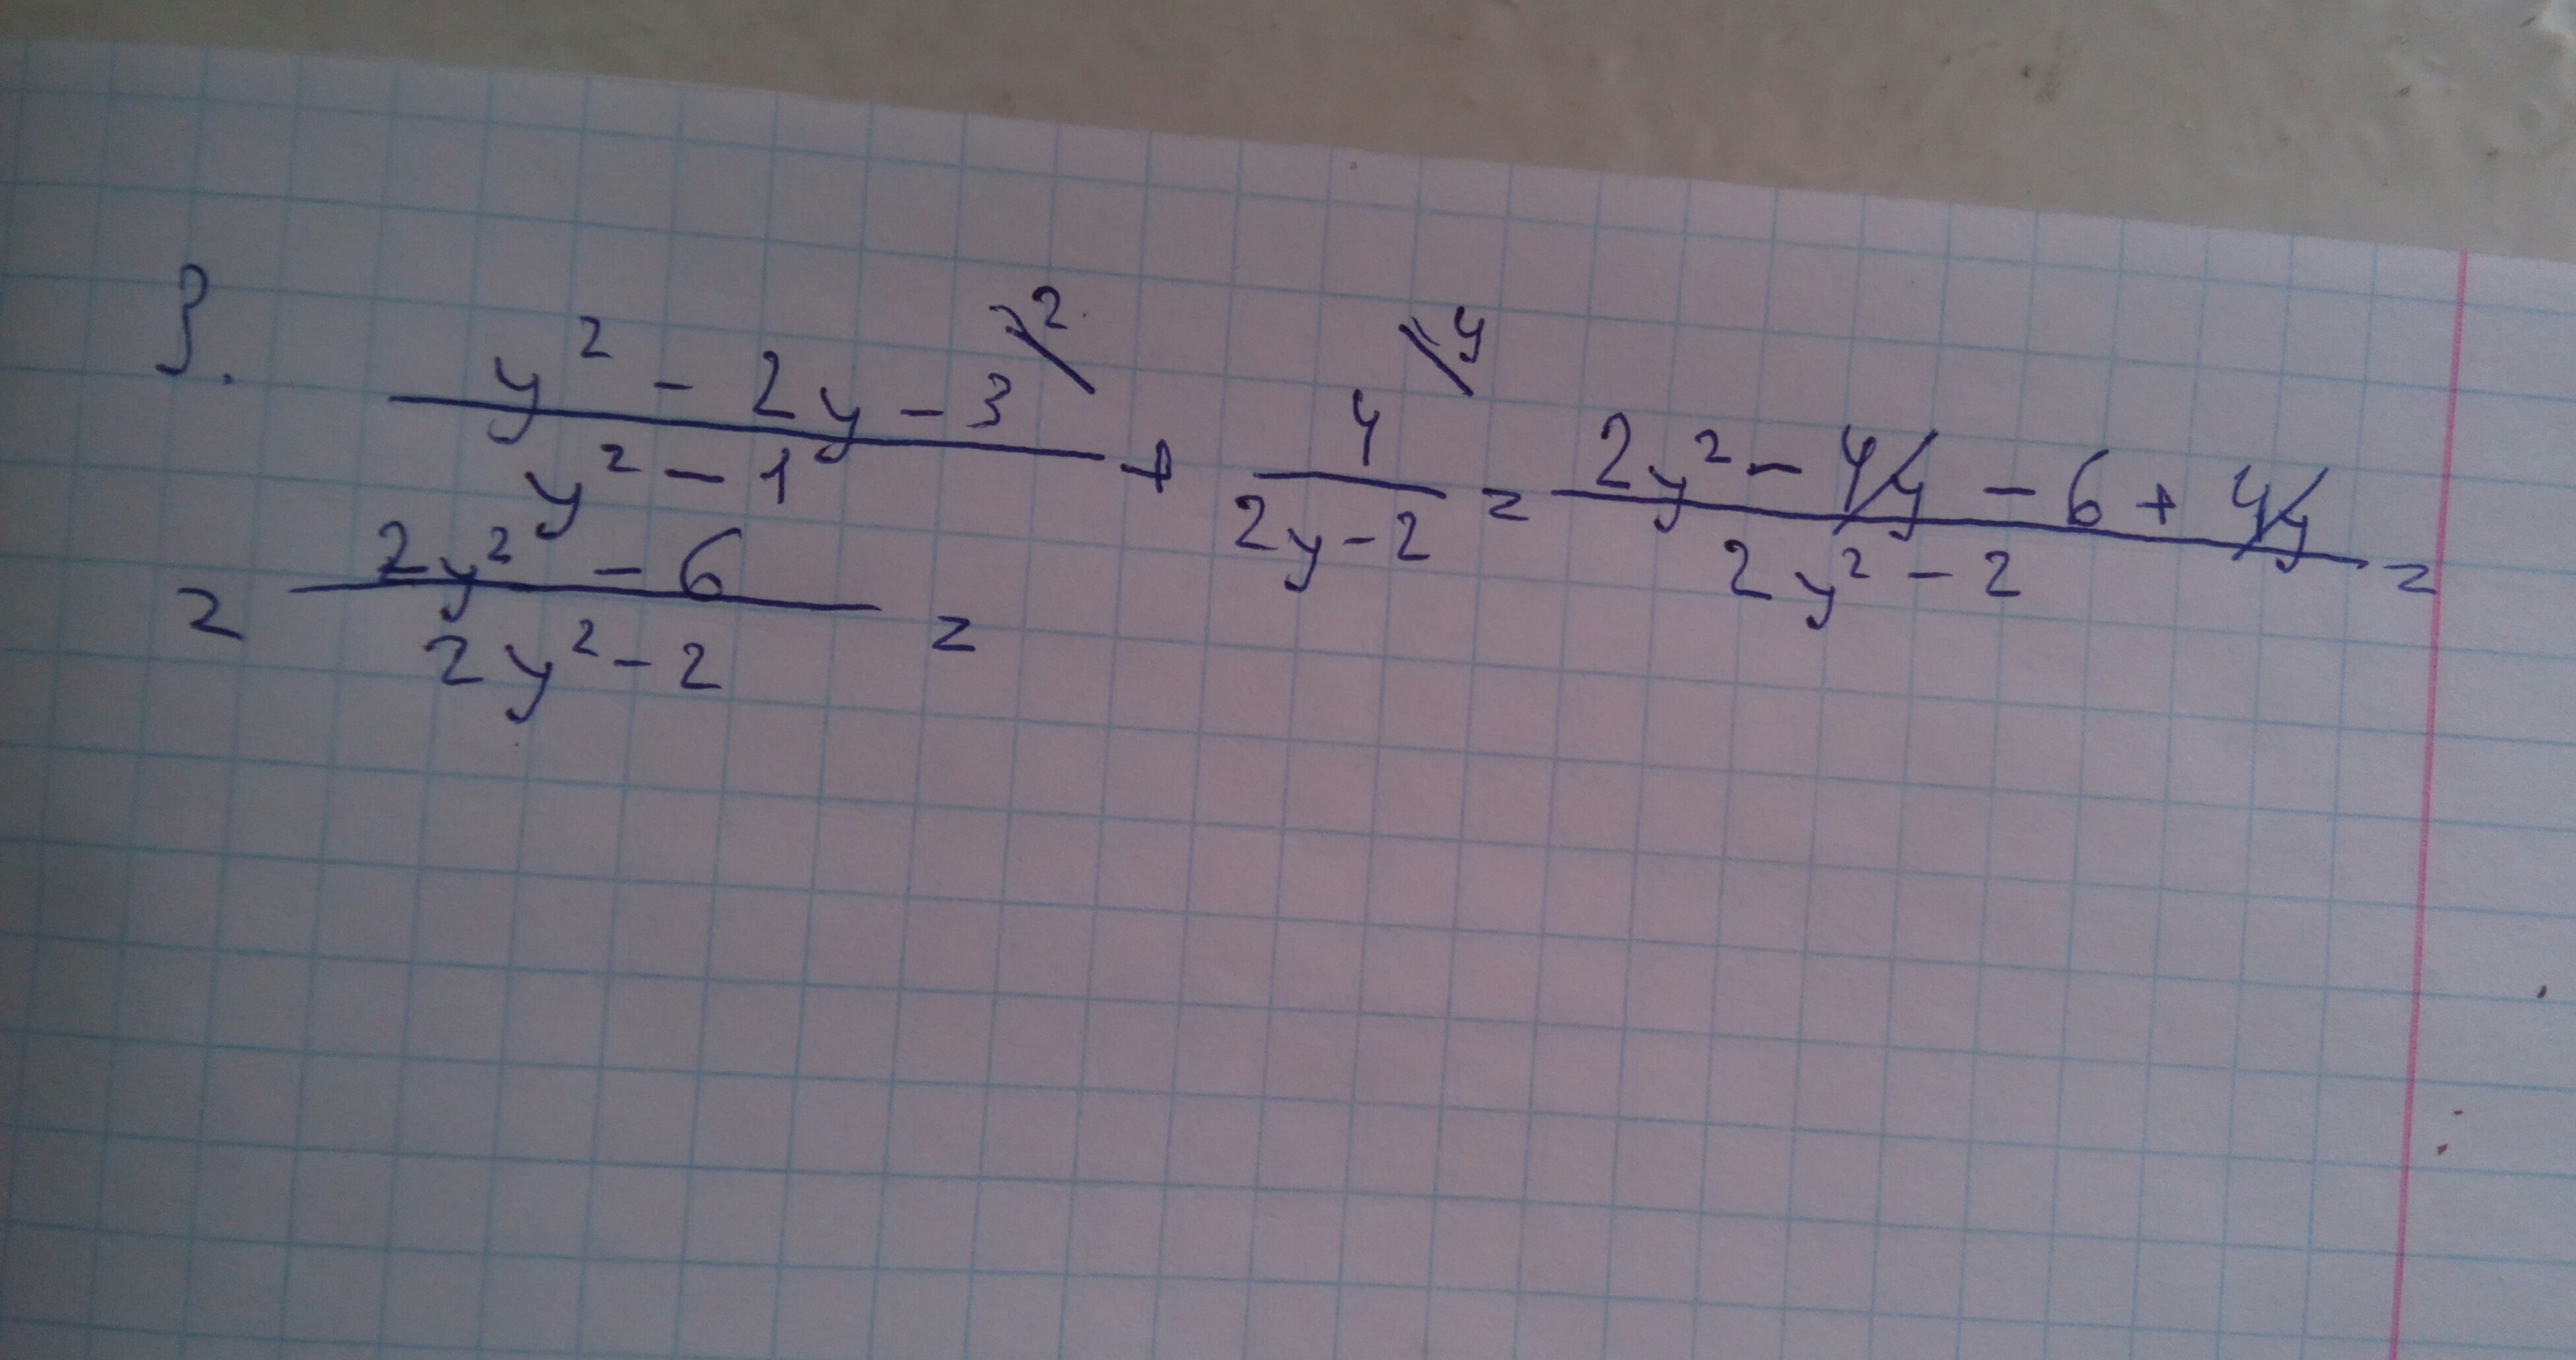 3. (y² - 2y - 3)/(y² - 1) \2 + 4/(2y - 2) \y = (2y² - 4y - 6 + 4y)/(2y² - 2) =
= (2y² - 6)/(2y² - 2) =